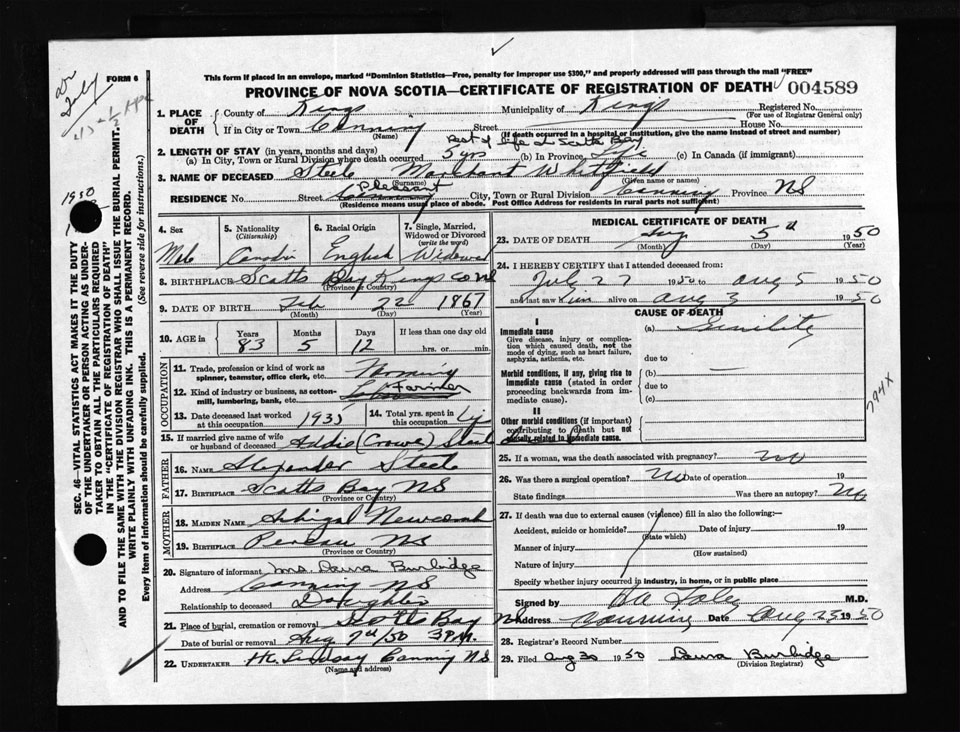 This form if placed in an envelope, marked "Dominion Statistics—Free, penalty for improper use $300," and properly addressed will pass through the mail "FREE"
FORM 6
PROVINCE OF NOVA SCOTIA—CERTIFICATE OF REGISTRATION OF DEATH 004589
1. PLACE OF DEATH County of Kings Municipality of Kings Registered No. (For use of Registrar General only)
If in City or Town Canning (Name) Street House No.
If death occurred in a hospital or institution, give the name instead of street and number)
Rest of life in Scotts Bay
2. LENGTH OF STAY (in years, months and days)
(a) In City, Town or Rural Division where death occurred 5 yrs (b) In Province Life (c) In Canada (if immigrant)
3. NAME OF DECEASED Steele Marchant Whitfield
(Surname) (Given name or names)
RESIDENCE No. Street Pleasant Canning City, Town or Rural Division Canning Province NS
(Residence means usual place of abode. Post Office Address for residents in rural parts not sufficient)
4. Sex Male
5. Nationality (Citizenship) Canadian
6. Racial Origin English
7. Single, Married, Widowed or Divorced (write the word) Widower
8. BIRTHPLACE Scotts Bay Kings Co NS
(Province or Country)
9. DATE OF BIRTH Feb 22 1867
(Month) (Day) (Year)
10. AGE in Years 83 Months 5 Days 12 If less than one day old hrs. or min.
OCCUPATION
11. Trade, profession or kind of work as spinner, teamster, office clerk, etc. Farming
12. Kind of industry or business, as cotton-mill, lumbering, bank, etc. Farmer
13. Date deceased last worked at this occupation 1935
14. Total yrs. spent in this occupation
15. If married give name of wife or husband of deceased Addie (Crowe) Steele
FATHER
16. NAME Alexander Steele
17. BIRTHPLACE Scotts Bay NS
(Province or Country)
MOTHER
18. MAIDEN NAME Abigal Newcomb
19. BIRTHPLACE Pereau NS
(Province or Country)
20. Signature of informant Mrs. Laura Burbidge
Address Canning NS
Relationship to deceased Daughter
21. Place of burial, cremation or removal Scotts Bay NS
Date of burial or removal Aug 7th/50 3 P.M.
22. UNDERTAKER H.C. Lindsay Canning NS
(Name and address)
MEDICAL CERTIFICATE OF DEATH
23. DATE OF DEATH Aug 5th 1950
(Month) (Day) (Year)
24. I HEREBY CERTIFY that I attended deceased from:
July 27 1950 to Aug 5 1950
and last saw him alive on Aug 3 1950
CAUSE OF DEATH
I
Immediate cause (a) Senility
Give disease, injury or complication which caused death, not the mode of dying, such as heart failure, asphyxia, asthenia, etc.
due to
Morbid conditions, if any, giving rise to immediate cause (stated in order proceeding backwards from immediate cause). (b) —
due to
(c)
II
Other morbid conditions (if important) contributing to death but not causally related to immediate cause.
794X
25. If a woman, was the death associated with pregnancy? No
26. Was there a surgical operation? No Date of operation 19
State findings Was there an autopsy? No
27. If death was due to external causes (violence) fill in also the following:—
Accident, suicide or homicide? Date of injury 19
(State which)
Manner of injury
(How sustained)
Nature of injury
Specify whether injury occurred in industry, in home, or in public place
Signed by M.D.
Address Canning Date Aug 23 1950
28. Registrar's Record Number
29. Filed Aug 30 1950 Laura Burbidge
(Division Registrar)
SEC. 46—VITAL STATISTICS ACT MAKES IT THE DUTY
OF THE UNDERTAKER OR PERSON ACTING AS UNDER-
TAKER TO OBTAIN ALL THE PARTICULARS REQUIRED
IN THE "CERTIFICATE OF REGISTRATION OF DEATH"
AND TO FILE THE SAME WITH THE DIVISION REGISTRAR WHO SHALL ISSUE THE BURIAL PERMIT.
WRITE PLAINLY WITH UNFADING INK. THIS IS A PERMANENT RECORD.
Every item of information should be carefully supplied. (See reverse side for instructions.)